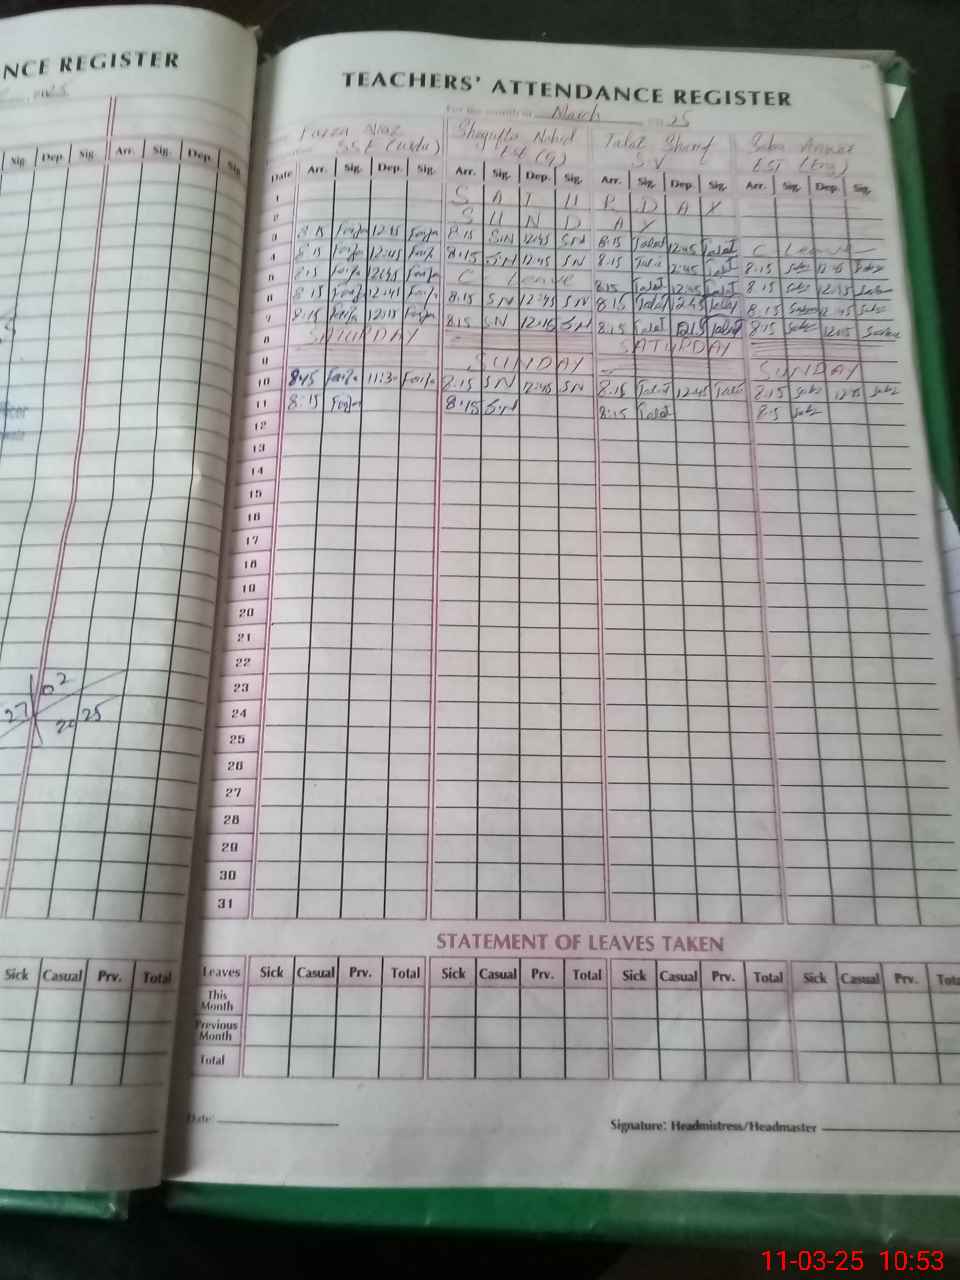 NCE REGISTER
Sig. Dep. Sig. Arr. Sig. Dep. Sig.
27 02
20 25
Sick Casual Prv. Total
TEACHERS' ATTENDANCE REGISTER
For the month of March 25
Faiza Niaz Shagufta Nahid Talat Sharif Saba
SSE (Urdu) EST (G) S.V EST (Eng)
Date Arr. Sig. Dep. Sig. Arr. Sig. Dep. Sig. Arr. Sig. Dep. Sig. Arr. Sig. Dep. Sig.
1 S A T U R D A Y
2 S U N D A Y
3 8:15 12:45 8:15 S.N 12:45 S.N 8:15 Talat 12:45 Talat C Leave
4 8:15 12:45 8:15 S.N 12:45 S.N 8:15 12:45 Talat 8:15 12:45
5 8:15 12:45 C Leave 8:15 Talat 12:45 Talat 8:15 12:45
6 8:15 12:45 8:15 S.N 12:45 S.N 8:15 Talat 12:45 Talat 8:15 12:45
7 8:15 12:15 8:15 S.N 12:15 S.N 8:15 Talat 12:15 Talat 8:15 12:15
8 SATURDAY SATURDAY
9 SUNDAY SUNDAY
10 8:45 11:30 8:15 S.N 12:45 S.N 8:15 Talat 12:45 Talat 8:15 12:45
11 8:15 8:15 S.N 8:15 Talat 8:15
12
13
14
15
16
17
18
19
20
21
22
23
24
25
26
27
28
29
30
31
STATEMENT OF LEAVES TAKEN
Leaves Sick Casual Prv. Total Sick Casual Prv. Total Sick Casual Prv. Total Sick Casual Prv. Tota
This Month
Previous Month
Total
Date:
Signature: Headmistress/Headmaster
11-03-25 10:53